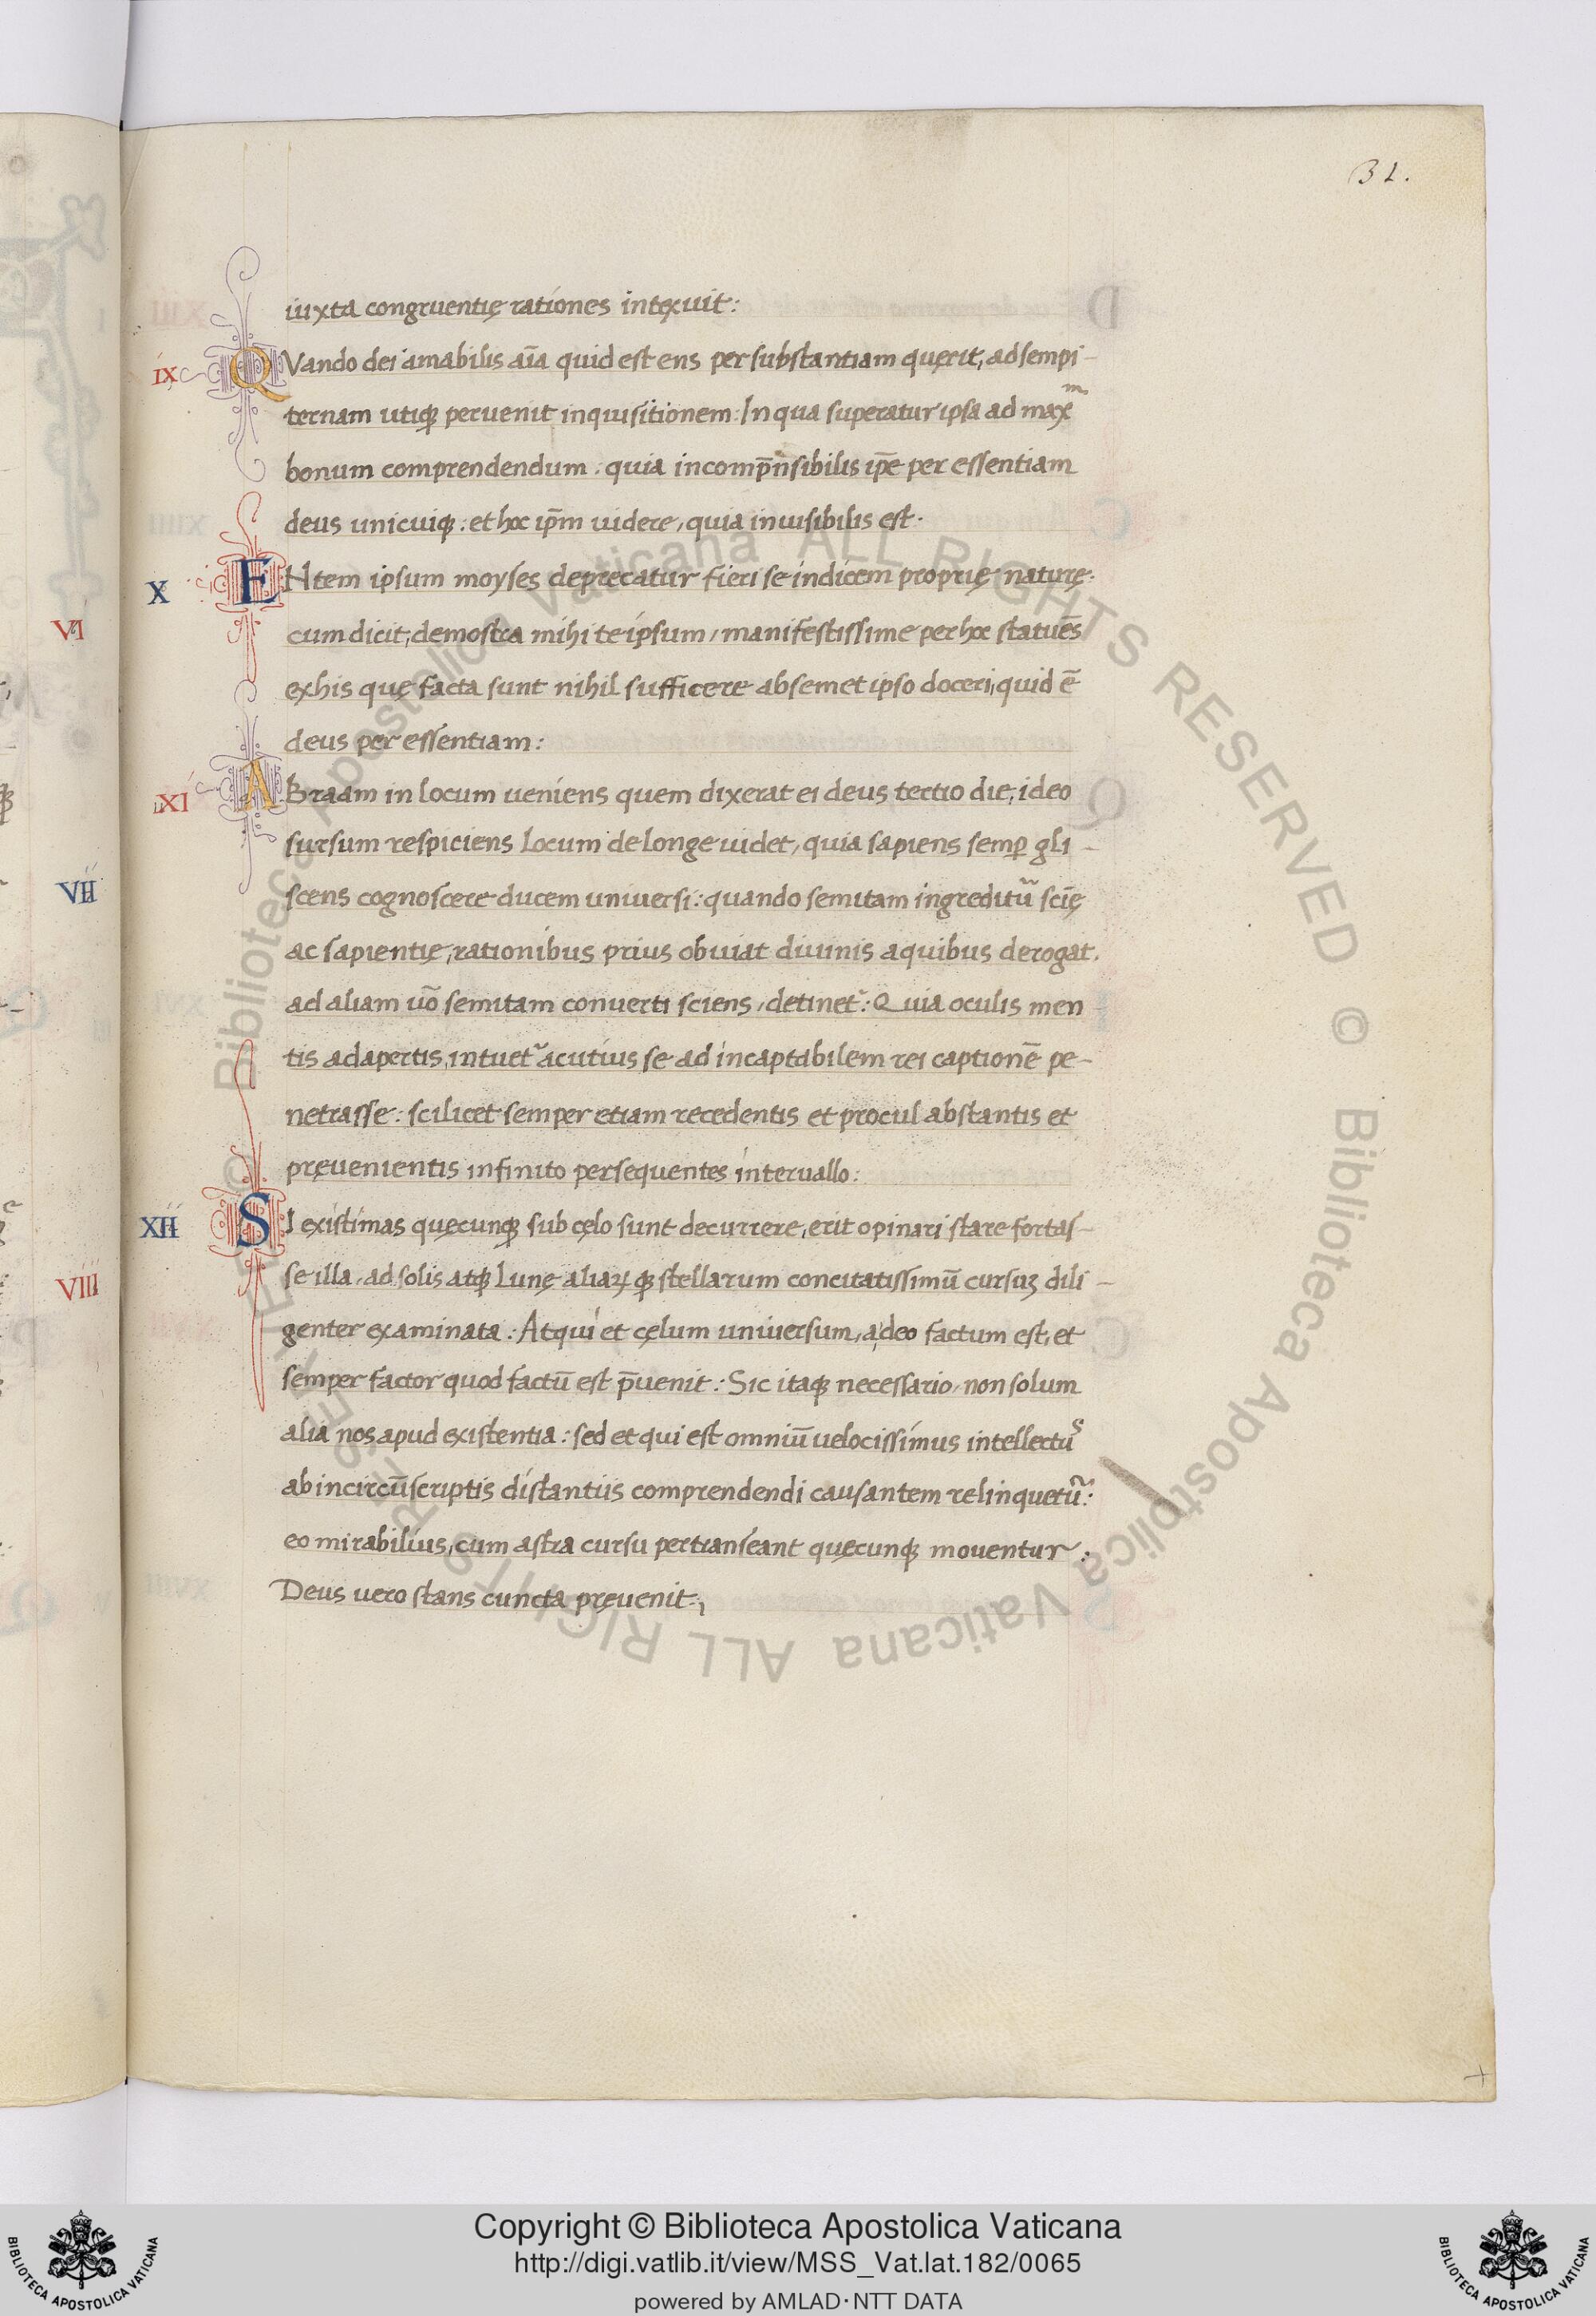 31.
iuxta congruentię rationes intexuit:
IX QVando dei amabilis aīa quid est ens per substantiam quęrit, ad sempi-
ternam utiqꝫ peruenit inquisitionem: In qua superatur ipsa ad maxᵐ
bonum comprendendum. quia incomp̄nsibilis ip̄e per essentiam
deus unicuiqꝫ: et hoc ip̄m uidere, quia inuisibilis est.
X ENtem ipsum moyses deprecatur fieri se indicem proprię naturę.
VI
cum dicit, demostra mihi te ipsum, manifestissime per hoc statuēs
ex his quę facta sunt nihil sufficere ab semet ipso doceri, quid ē
deus per essentiam:
XI ABraam in locum ueniens quem dixerat ei deus tertio die, ideo
sursum respiciens locum de longe uidet, quia sapiens semꝑ gli-
VII
scens cognoscere ducem uniuersi: quando semitam ingreditu᷑ scię̄
ac sapientię, rationibus prius obuiat diuinis a quibus derogat.
ad aliam uō semitam conuerti sciens, detinet᷑: Quia oculis men
tis adapertis, intuet᷑ acutius se ad incaptabilem rei captionē pe-
netrasse: scilicet semper etiam recedentis et procul abstantis et
pręuenientis infinito persequentes interuallo:
XII SI existimas quęcunqꝫ sub cęlo sunt decurrere, erit opinari stare fortas-
VIII
se illa, ad solis atqꝫ Lunę aliaꝝqꝫ stellarum concitatissimū cursuꝫ dili-
genter examinata: Atqui et cęlum uniuersum, a deo factum est, et
semper factor quod factū est p̄uenit: Sic itaqꝫ necessario, non solum
alia nos apud existentia: sed et qui est omniū uelocissimus intellectuˢ
ab incircūscriptis distantiis comprendendi causantem relinquetu᷑:
eo mirabilius, cum astra cursu pertranseant quęcunqꝫ mouentur:
Deus uero stans cuncta pręuenit:,
© Biblioteca Apostolica Vaticana ALL RIGHTS RESERVED © Biblioteca Apostolica Vaticana ALL RIGHTS RESERVED
Copyright © Biblioteca Apostolica Vaticana
http://digi.vatlib.it/view/MSS_Vat.lat.182/0065
powered by AMLAD·NTT DATA
BIBLIOTECA APOSTOLICA VATICANA
BIBLIOTECA APOSTOLICA VATICANA